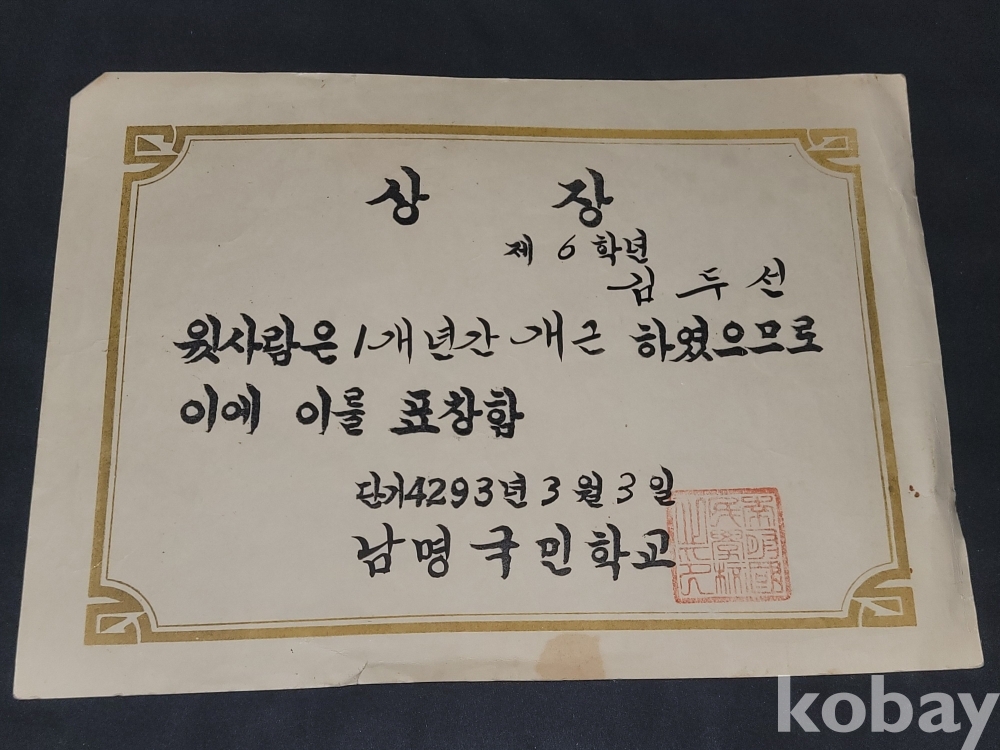 상 장
제 6 학년
김 두 선
윗사람은 1개년간 개근 하였으므로
이에 이를 표창함
단기4293년 3월 3일
남명국민학교
kobay